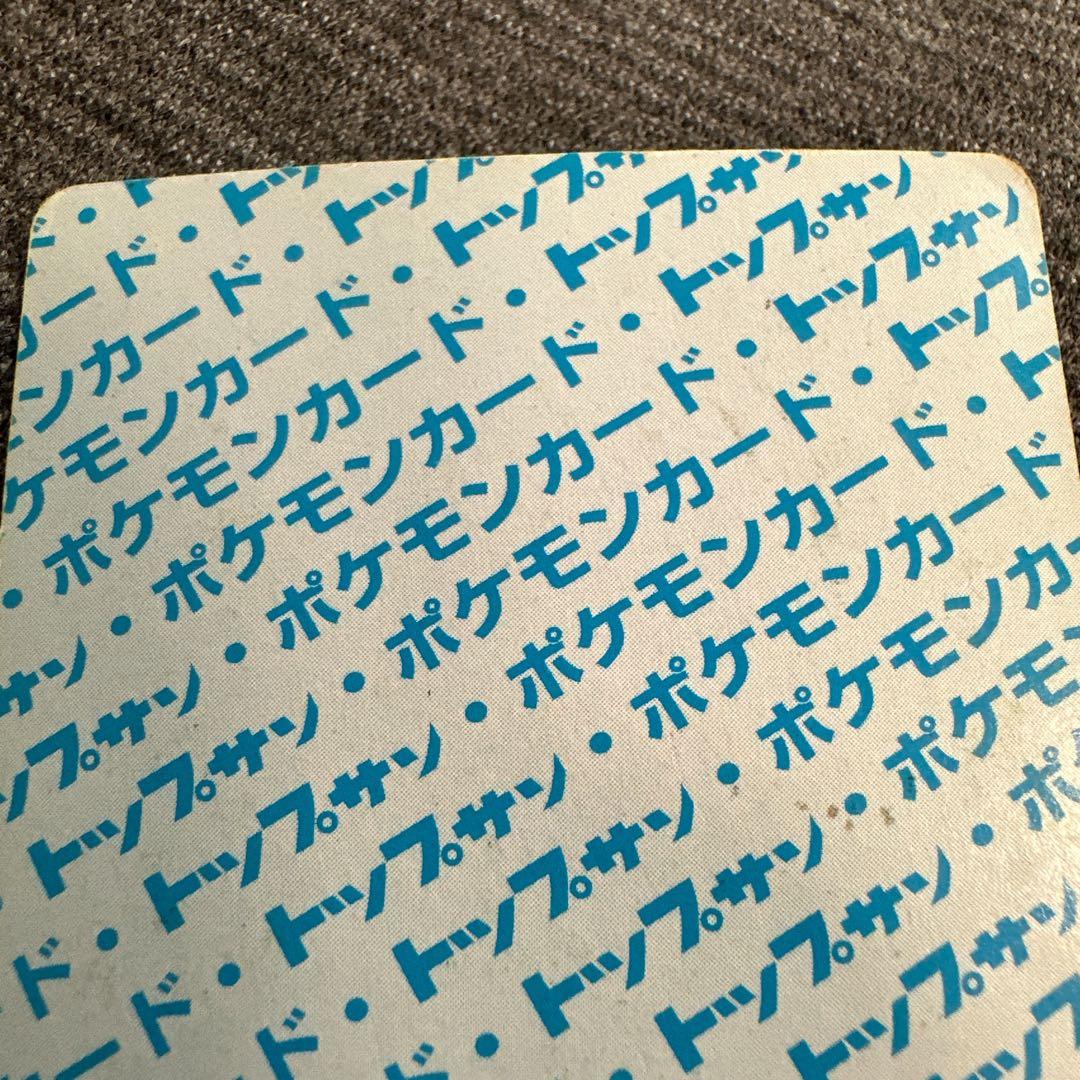 ド・ト
ード・トップ
ンカード・トップサ
ケモンカード・トップサン
・ポケモンカード・トップサン
サン・ポケモンカード・トップサン
ップサン・ポケモンカード・トップ
トップサン・ポケモンカード・ト
トップサン・ポケモンカード
ド・トップサン・ポケモンカ
ド・トップサン・ポケモ
ード・トップサン・ポ
ド・トップサン
ド・トップサン